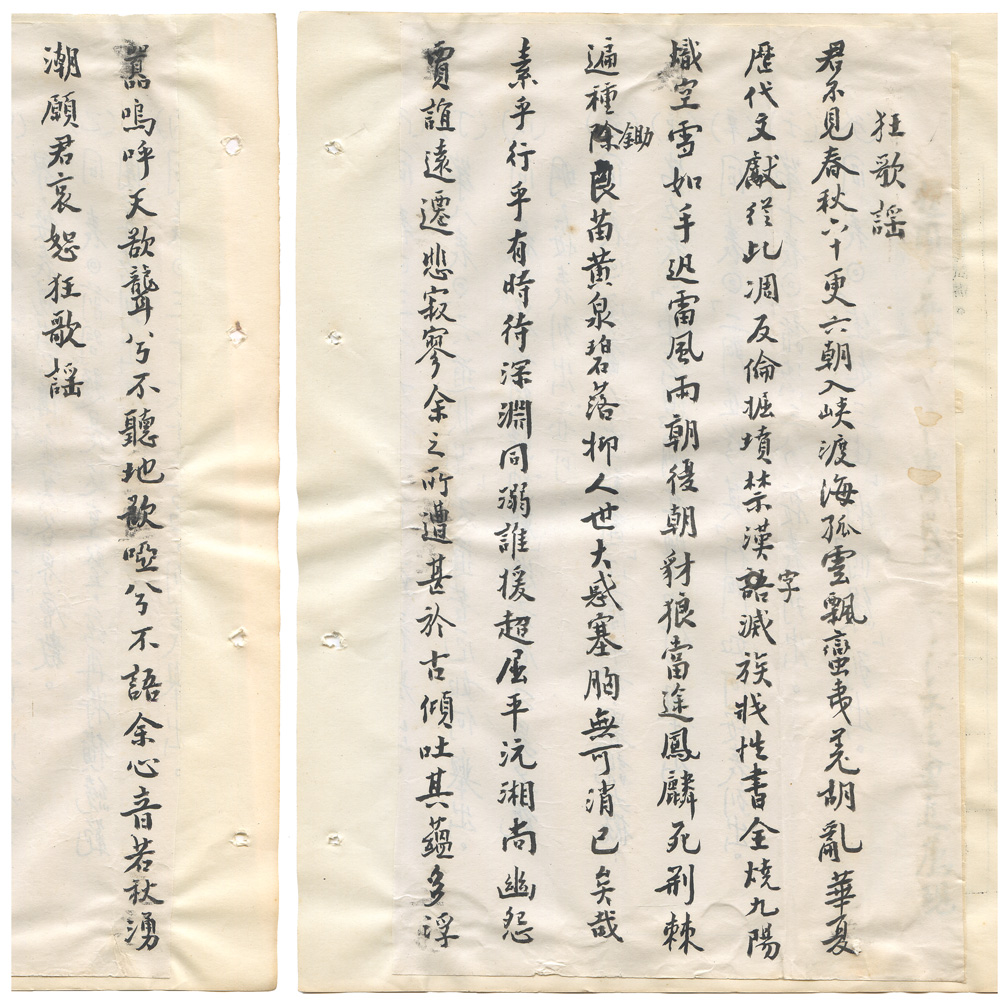 狂歌謡
君不見春秋六十更六朝入峽渡海孤雲飄蠻夷羌胡亂華夏
歷代文獻從此凋反倫掘墳禁漢語字滅族戕性書全燒九陽
熾空雪如手迅雷風雨朝復朝豺狼當途鳳麟死荆棘
遍種除鋤良苗黄泉碧落抑人世大惑塞胸無可消已矣哉
素乎行乎有時待深淵同溺誰援超屈平沅湘尚幽怨
賈誼遠遷悲寂寥余之所遭甚於古傾吐其蘊多浮
嚣嗚呼天欲聾兮不聽地欲啞兮不語余心音若秋湧
潮願君哀恕狂歌謡